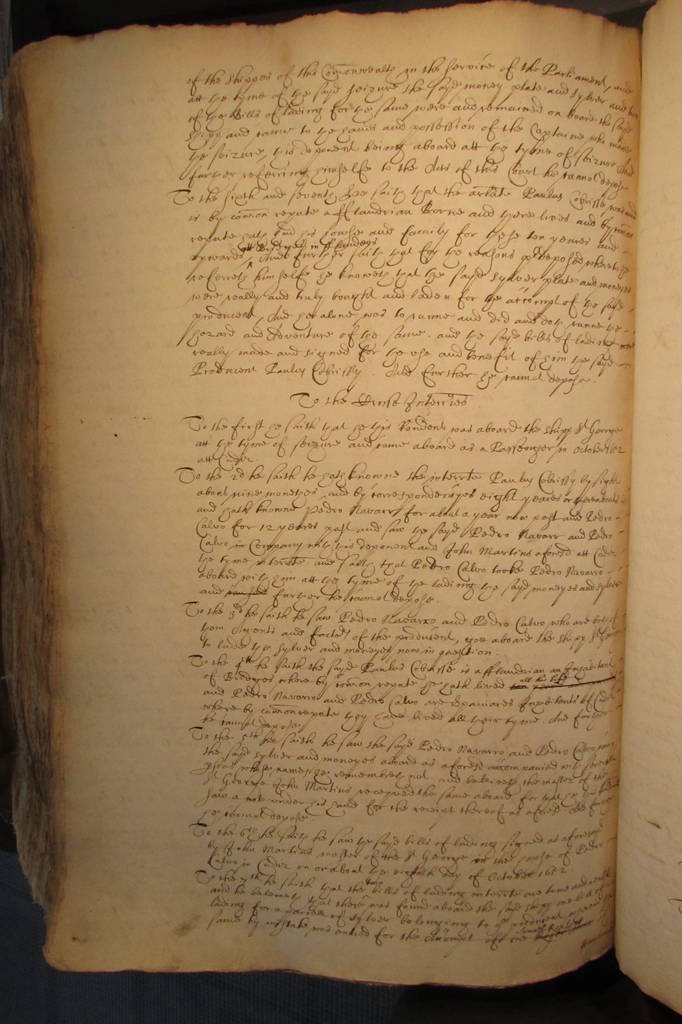 of the shippes of this Comonwealth in the service of the Parliament, and
att the tyme of the sayd seizure the sayd money plate and sylver and
of the bills of lading for the same were and remained on board the sayd
shipp and came to the hands and possession of the Captaine who made
the seizure, this deponent being aboard att the tyme of seizure And
further referring himselfe to the Acts of this Court he cannot depose
To the sixth and seventh hee saith that the arlate Paulus Cibrisse was and
is by comon repute a fflandrian Borne and there lives and by comon
repute hath kept his howse and family for these ten yeares and
upwards And further saith that for the reasons predeposed whereto he
referreth himselfe he knoweth that the sayd sylver plate and moneyes
were really and truly bought and laden for the accompt of the sayd
producent, And hee alone was to runne and did and doth runne the
hazard and adventure of the same. and the sayd bills of lading were
really made and signed for the use and benefit of him the sayd
Producent Paulus Cibrissy. And further he cannot depose.
To the Interries
To the first he saith that he this Rendent was aboard the shipp St George
att the tyme of seizure and came aboard as a Passenger in October 1652
att Cadiz
To the 2d he saith he hath knowne the interrate Paulus Cibrissy by sight
about nine monethes, and by correspondency eight yeares or thereabouts
and hath knowne Pedro Navarr for about a year now past and Pedro
Calvo for 12 yeares past and saw the sayd Pedro Navarr and Pedro
Calvo in Company with this deponent and John Martins aforesd att Cadiz
the tyme interrate. and saith that Pedro Calvo tooke Pedro Navarro
aboard with him att the tyme of the lading the sayd moneyes and sylver
and further he cannot depose
To the 3d he saith he saw Pedro Navarro and Pedro Calvo who are both of
them Agents and factors of the producent, goe aboard the shipp St George
to lade the sylver and moneyes now in question.
To the 4th he saith the sayd Paulus Cibrisse is a fflandrian an Inhabitant
of Bridges where by comon repute he hath lived all his life
and Pedro Navarro and Pedro Calvo are Spaniards Inhabitants of Cadiz
where by comon repute they have lived all their tyme And further
he cannot depose
To the 5th he saith he saw the sayd Pedro Navarro and Pedro Calvo carry
the sayd sylver and moneyes aboard as aforesd accompanied with severall
others whose names he remembers not, and beleeves the master of the
George John Martins received the same aboard for that he this deponent
saw a note under his hand for the receipt thereof as aforesd And further
he cannot depose
To the 6th he saith he saw the sayd bills of lading signed as aforesd
by John Martins master of the St George in the howse of Pedro
Calvo in Cadiz on or about the eighth day of October 1652
To the 7th he saith that the bills of lading interrate are true and reall
and he beleeveth that there was found aboard the sayd shipp one bill of
lading for a parcell of sylver belonging to the producent
same by mistake was entred for the Accompt of one